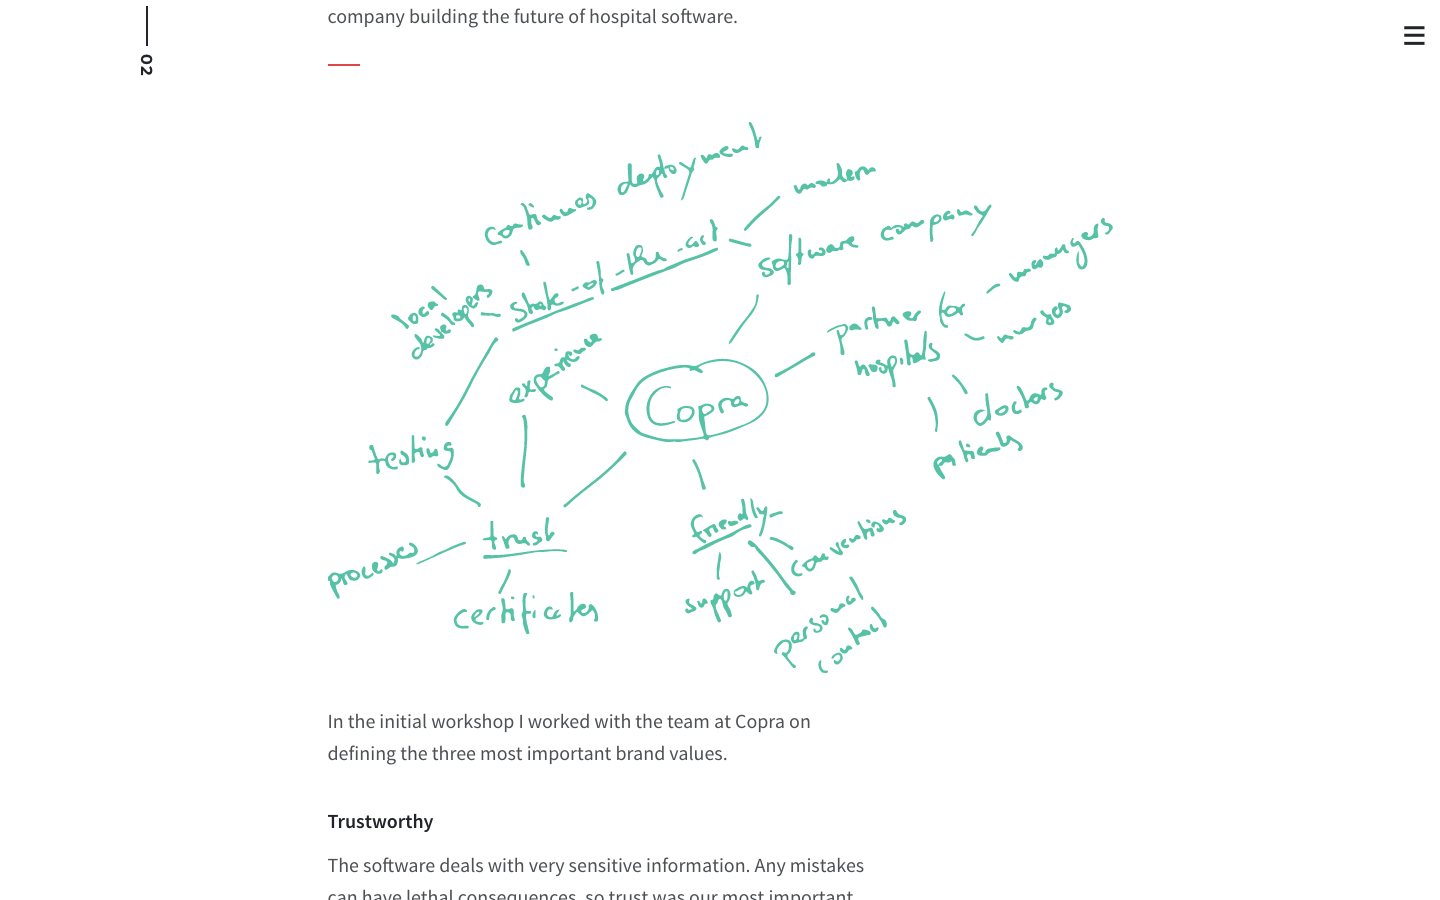 company building the future of hospital software.
02
continues deployment
modern
software company
state-of-the-art
local
developers
managers
partner for
hospitals
nurses
experience
Copra
doctors
patients
testing
trust
friendly
conventions
processes
support
certificates
personal
contact
In the initial workshop I worked with the team at Copra on
defining the three most important brand values.
Trustworthy
The software deals with very sensitive information. Any mistakes
can have lethal consequences, so trust was our most important